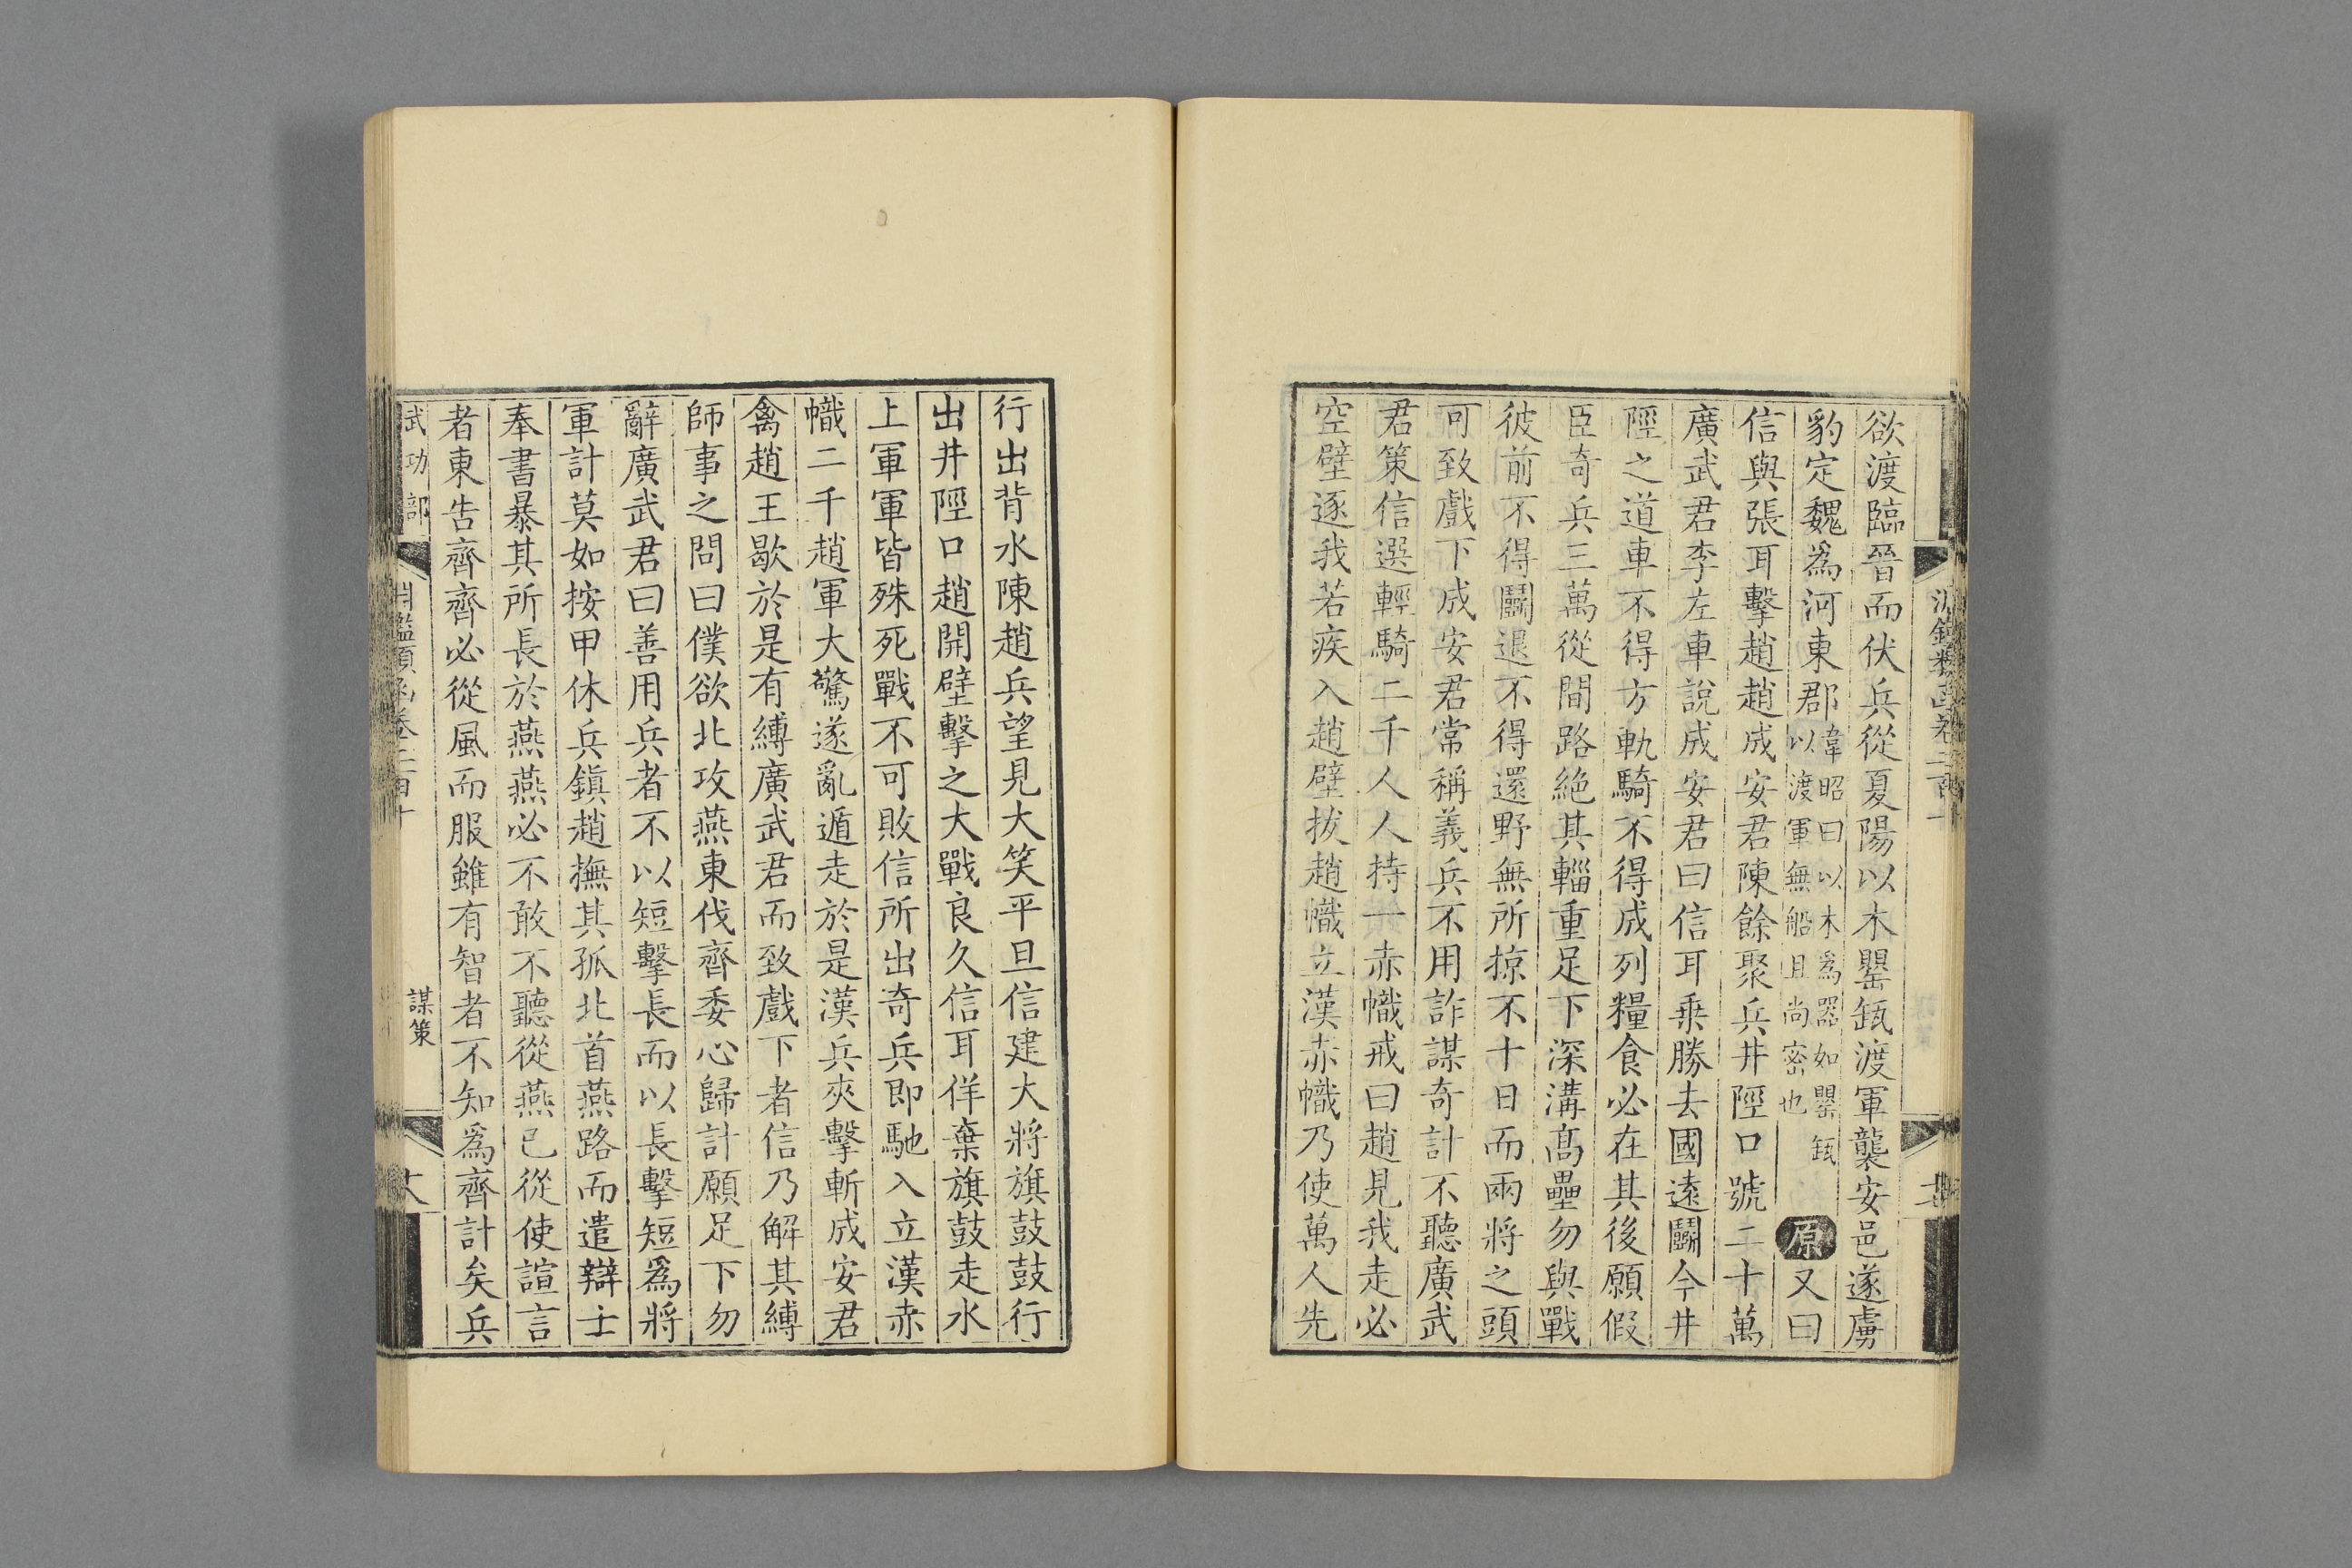 欲渡臨晉而伏兵從夏陽以木罌缻渡軍襲安邑遂虜
豹定魏爲河東郡
韋昭曰以木爲器如罌缻
以渡軍無船且尚密也
原又曰
信與張耳擊趙趙成安君陳餘聚兵井陘口號二十萬
廣武君李左車說成安君曰信耳乗勝去國遠鬭今井
陘之道車不得方軌騎不得成列糧食必在其後願假
臣奇兵三萬從間路絶其輜重足下深溝髙壘勿與戰
彼前不得鬭退不得還野無所掠不十日而兩將之頭
可致戲下成安君常稱義兵不用詐謀奇計不聽廣武
君策信選輕騎二千人人持一赤幟戒曰趙見我走必
空壁逐我若疾入趙壁拔趙幟立漢赤幟乃使萬人先
行出背水陳趙兵望見大笑平旦信建大將旗鼓鼓行
出井陘口趙開壁擊之大戰良久信耳佯棄旗鼓走水
上軍軍皆殊死戰不可敗信所出奇兵即馳入立漢赤
幟二千趙軍大驚遂亂遁走於是漢兵夾擊斬成安君
禽趙王歇於是有縛廣武君而致戲下者信乃解其縛
師事之問曰僕欲北攻燕東伐齊委心歸計願足下勿
辭廣武君曰善用兵者不以短擊長而以長擊短爲將
軍計莫如按甲休兵鎮趙撫其孤北首燕路而遣辯士
奉書暴其所長於燕燕必不敢不聽從燕已從使諠言
者東告齊齊必從風而服雖有智者不知爲齊計矣兵
武功部 淵鑑類函卷二百十 謀策